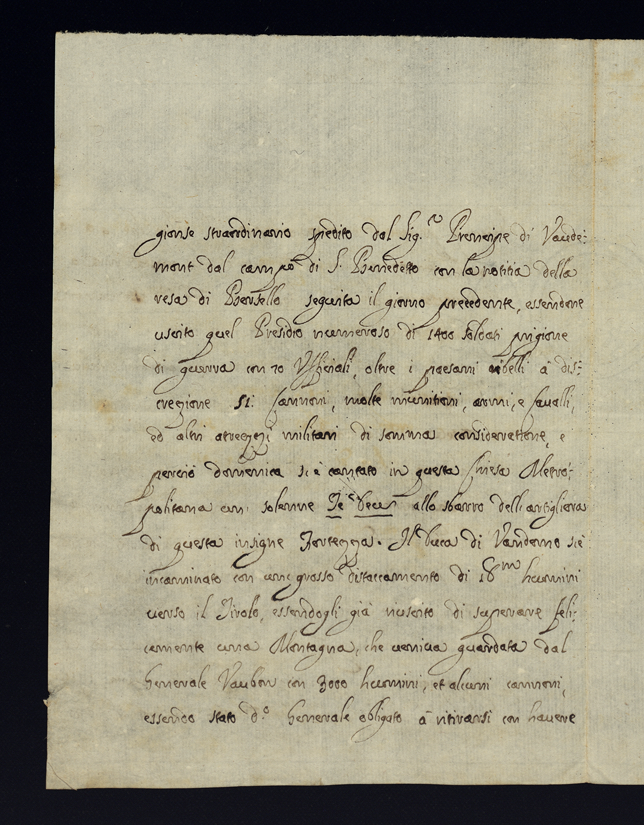 gionse straordinario spedito dal Sig.r Prencipe di Vaude:
mont dal campo di S. Benedetto con la notitia della
resa di Bersello seguita il giorno precedente, essendone
uscito quel Presidio numeroso di 1400 soldati prigione
di guerra con 70 Vfficiali, oltre i paesani ribelli à dis:
crezione 51. Cannoni, molte munitioni, armi, e Cavalli,
ed altri atrezzi militari di somma considerattione, e
perciò domenica si è cantato in questa Chiesa Metro:
politana un solenne Te Deum allo sbarro dell'artigliera
di questa insigne Fortezza. Il Duca di Vandomo si è
incaminato con un grosso distaccamento di 18m huomini
verso il Tirolo, essendogli già riuscito di superare feli:
camente una Montagna, che veniva guardata dal
Generale Vaubon con 3000 huomini, et alcuni cannoni,
essendo stato d.o Generale obligato à ritirarsi con havere